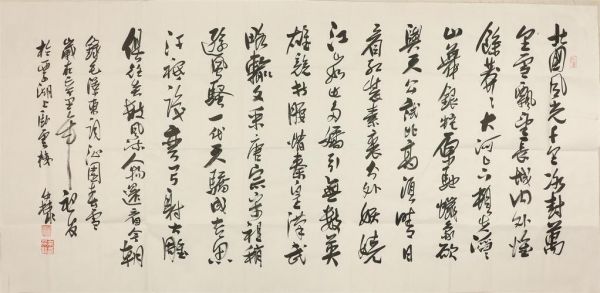 北國風光千里冰封萬
里雪飄望長城內外惟
餘莽〻大河上下頓失滔
山舞銀蛇原馳蠟象欲
與天公試比高須晴日
看紅裝素裹分外妖嬈
江山如此多嬌引無數英
雄競折腰惜秦皇漢武
略輸文采唐宗宋祖稍
遜風騷一代天驕成吉思
汗祇識彎弓射大雕
俱往矣數風流人物還看今朝
錄毛澤東詞沁園春雪
歲在
於湖上臥雲樓